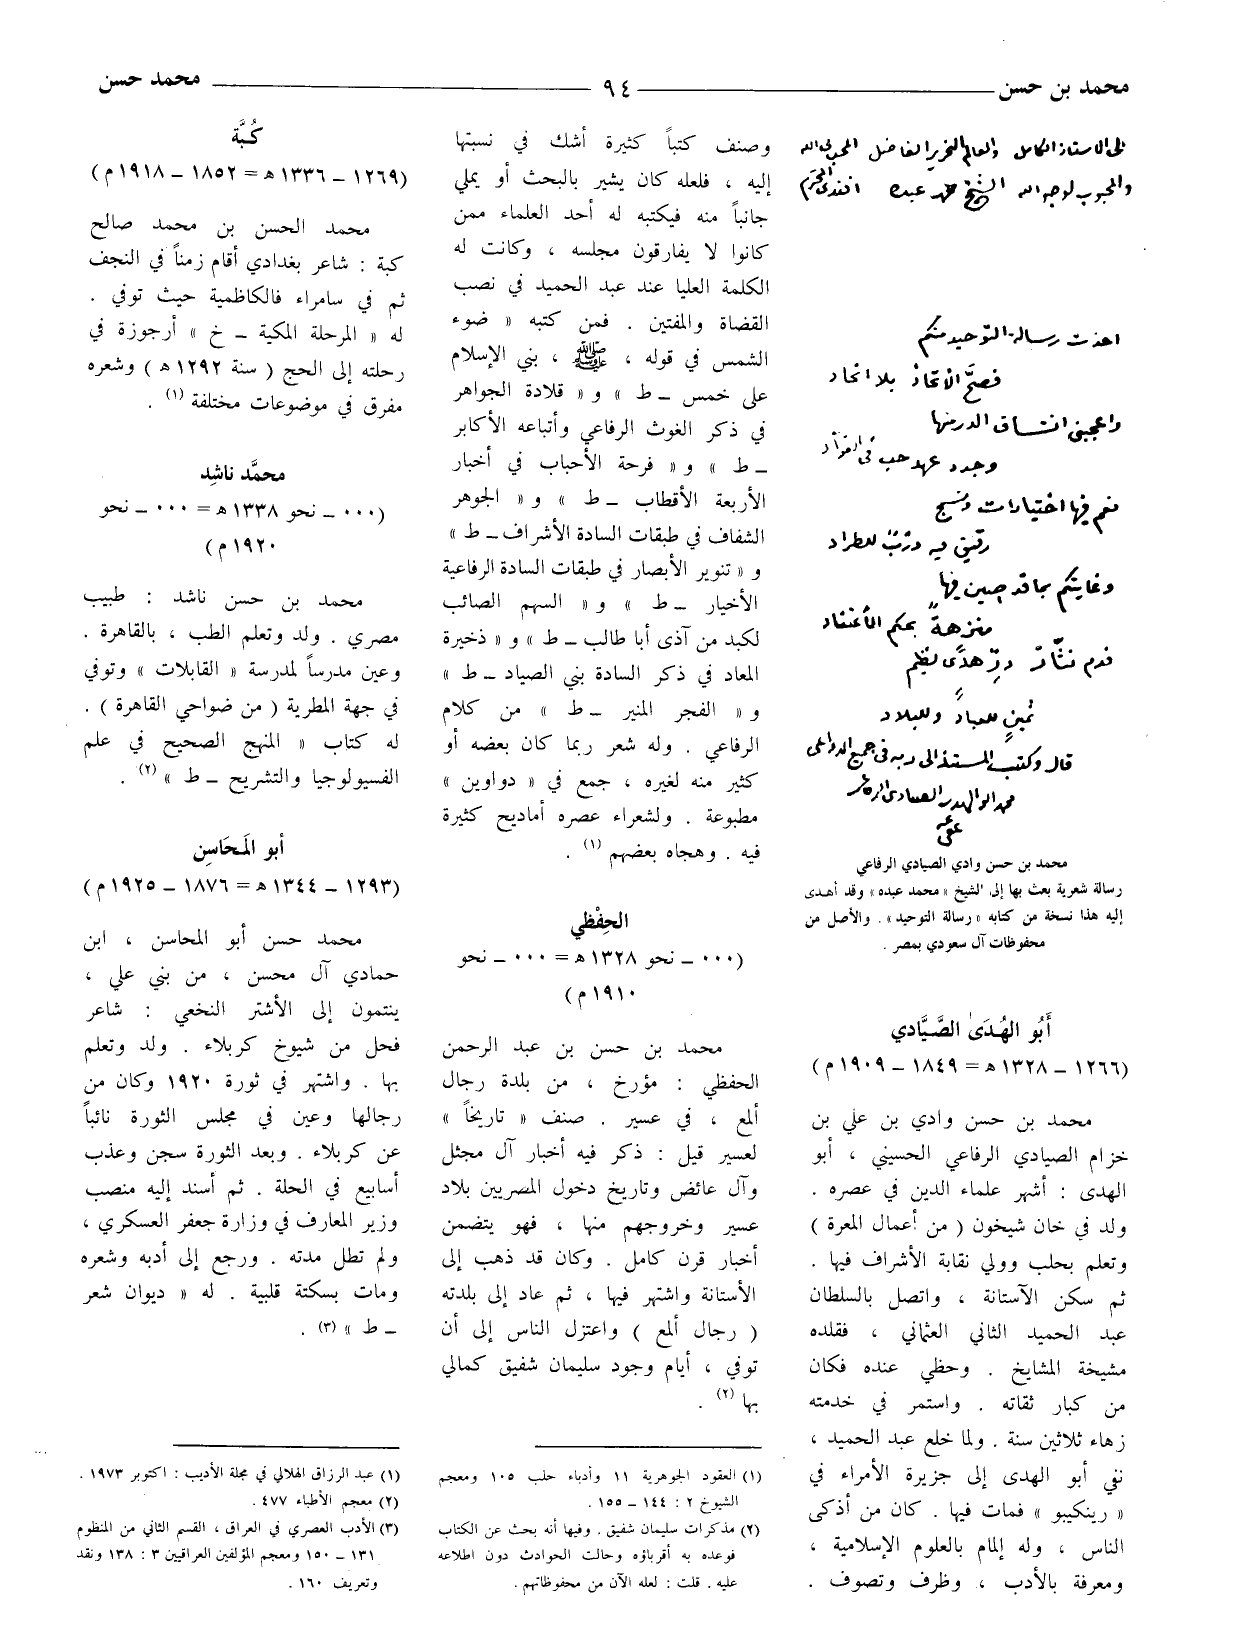 محمد بن حسن ــــــ ٩٤ ــــــ محمد حسن
الى الاستاذ الكامل والعالم النحرير الفاضل المحب في الله
والمحبوب لوجه الله الشيخ محمد عبده افندي المحترم
اخذت رسالة التوحيد منكم
فصحّ الاتحاد بلا اتحاد
واعجبني اتساق الدر منها
وجدد عهد حب في الفؤاد
نعم فيها اختيارات ونسج
رقيق فيه
وغايتكم بما قد صين فيها
منزهة بحكم الاعتقاد
فدم نثّار درّ هدًى نظيم
ثمينٍ للعباد وللبلاد
قال وكتب المستند الى ربه في جميع الدواعي
محمد ابو الهدى الصيادي الرفاعي
عفي عنه
محمد بن حسن وادي الصيادي الرفاعي
رسالة شعرية بعث بها إلى الشيخ « محمد عبده » وقد أهدى
إليه هذا نسخة من كتابه « رسالة التوحيد » . والأصل من
محفوظات آل سعودي بمصر .
أَبُو الهُدَى الصَّيَّادي
(١٢٦٦ ــ ١٣٢٨ هـ = ١٨٤٩ ــ ١٩٠٩ م)
محمد بن حسن وادي بن علي بن
خزام الصيادي الرفاعي الحسيني ، أبو
الهدى : أشهر علماء الدين في عصره .
ولد في خان شيخون ( من أعمال المعرة )
وتعلم بحلب وولي نقابة الأشراف فيها .
ثم سكن الآستانة ، واتصل بالسلطان
عبد الحميد الثاني العثماني ، فقلده
مشيخة المشايخ . وحظي عنده فكان
من كبار ثقاته . واستمر في خدمته
زهاء ثلاثين سنة . ولما خلع عبد الحميد ،
نفي أبو الهدى إلى جزيرة الأمراء في
« رينكيبو » فمات فيها . كان من أذكى
الناس ، وله إلمام بالعلوم الإسلامية ،
ومعرفة بالأدب ، وظرف وتصوف .
وصنف كتباً كثيرة أشك في نسبتها
إليه ، فلعله كان يشير بالبحث أو يملي
جانباً منه فيكتبه له أحد العلماء ممن
كانوا لا يفارقون مجلسه ، وكانت له
الكلمة العليا عند عبد الحميد في نصب
القضاة والمفتين . فمن كتبه « ضوء
الشمس في قوله ، ﷺ ، بني الإسلام
على خمس ــ ط » و « قلادة الجواهر
في ذكر الغوث الرفاعي وأتباعه الأكابر
ــ ط » و « فرحة الأحباب في أخبار
الأربعة الأقطاب ــ ط » و « الجوهر
الشفاف في طبقات السادة الأشراف ــ ط »
و « تنوير الأبصار في طبقات السادة الرفاعية
الأخيار ــ ط » و « السهم الصائب
لكبد من آذى أبا طالب ــ ط » و « ذخيرة
المعاد في ذكر السادة بني الصياد ــ ط »
و « الفجر المنير ــ ط » من كلام
الرفاعي . وله شعر ربما كان بعضه أو
كثير منه لغيره ، جمع في « دواوين »
مطبوعة . ولشعراء عصره أماديح كثيرة
فيه . وهجاه بعضهم (١) .
الحِفْظي
(٠٠٠ ــ نحو ١٣٢٨ هـ = ٠٠٠ ــ نحو
١٩١٠ م)
محمد بن حسن بن عبد الرحمن
الحفظي : مؤرخ ، من بلدة رجال
ألمع ، في عسير . صنف « تاريخاً »
لعسير قيل : ذكر فيه أخبار آل مجثل
وآل عائض وتاريخ دخول المصريين بلاد
عسير وخروجهم منها ، فهو يتضمن
أخبار قرن كامل . وكان قد ذهب إلى
الأستانة واشتهر فيها ، ثم عاد إلى بلدته
( رجال ألمع ) واعتزل الناس إلى أن
توفي ، أيام وجود سليمان شفيق كمالي
بها (٢) .
(١) العقود الجوهرية ١١ وأدباء حلب ١٠٥ ومعجم
الشيوخ ٢ : ١٤٤ ــ ١٥٥ .
(٢) مذكرات سليمان شفيق . وفيها أنه بحث عن الكتاب
فوعده به أقرباؤه وحالت الحوادث دون اطلاعه
عليه . قلت : لعله الآن من محفوظاتهم .
كُبَّة
(١٢٦٩ ــ ١٣٣٦ هـ = ١٨٥٢ ــ ١٩١٨ م)
محمد الحسن بن محمد صالح
كبة : شاعر بغدادي أقام زمناً في النجف
ثم في سامراء فالكاظمية حيث توفي .
له « الرحلة المكية ــ خ » أرجوزة في
رحلته إلى الحج ( سنة ١٢٩٢ هـ ) وشعره
مفرق في موضوعات مختلفة (١) .
محمَّد ناشِد
(٠٠٠ ــ نحو ١٣٣٨ هـ = ٠٠٠ ــ نحو
١٩٢٠ م)
محمد بن حسن ناشد : طبيب
مصري . ولد وتعلم الطب ، بالقاهرة .
وعين مدرساً لمدرسة « القابلات » وتوفي
في جهة المطرية ( من ضواحي القاهرة ) .
له كتاب « المنهج الصحيح في علم
الفسيولوجيا والتشريح ــ ط » (٢) .
أبو المَحَاسِن
(١٢٩٣ ــ ١٣٤٤ هـ = ١٨٧٦ ــ ١٩٢٥ م)
محمد حسن أبو المحاسن ، ابن
حمادي آل محسن ، من بني علي ،
ينتمون إلى الأشتر النخعي : شاعر
فحل من شيوخ كربلاء . ولد وتعلم
بها . واشتهر في ثورة ١٩٢٠ وكان من
رجالها وعين في مجلس الثورة نائباً
عن كربلاء . وبعد الثورة سجن وعذب
أسابيع في الحلة . ثم أسند إليه منصب
وزير المعارف في وزارة جعفر العسكري ،
ولم تطل مدته . ورجع إلى أدبه وشعره
ومات بسكتة قلبية . له « ديوان شعر
ــ ط » (٣) .
(١) عبد الرزاق الهلالي في مجلة الأديب : اكتوبر ١٩٧٣ .
(٢) معجم الأطباء ٤٧٧ .
(٣) الأدب العصري في العراق ، القسم الثاني من المنظوم
١٣١ ــ ١٥٠ ومعجم المؤلفين العراقيين ٣ : ١٣٨ ونقد
وتعريف ١٦٠ .